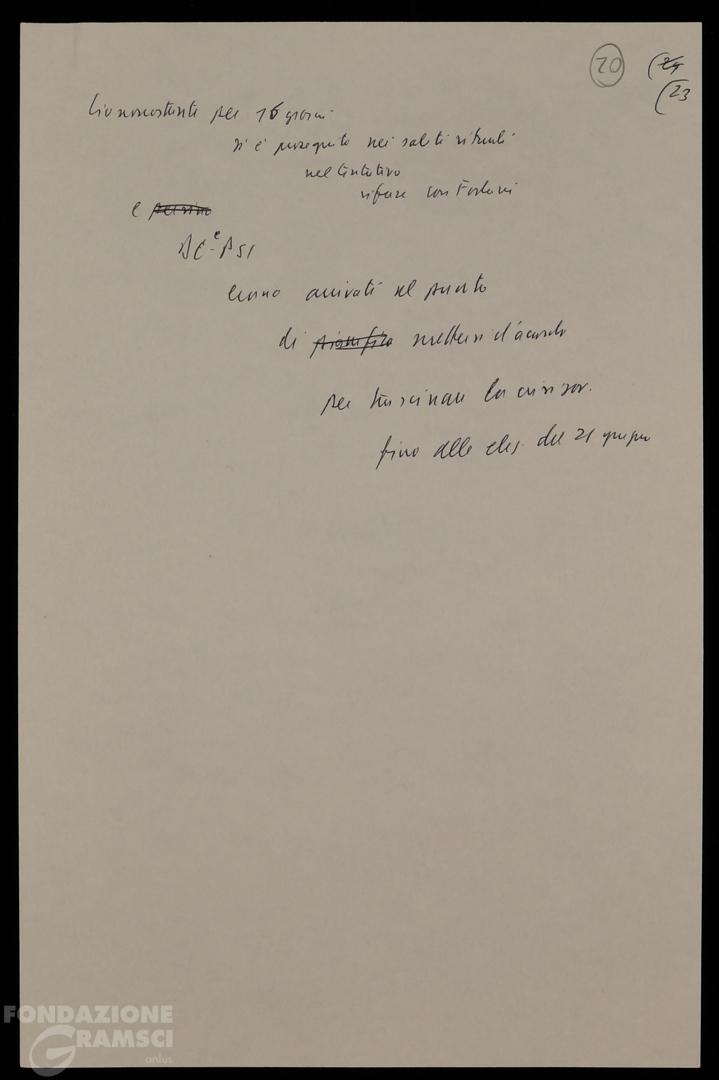 20
(24
(23
Ciononostante per 16 giorni
si è proseguito nei soliti rituali
nel tentativo
rifare con Forlani
e persino
DC e PSI
erano arrivati al punto
di mettersi d'accordo
per trascinare la crisi gov.
fino alle elez. del 21 giugno
FONDAZIONE
GRAMSCI
onlus